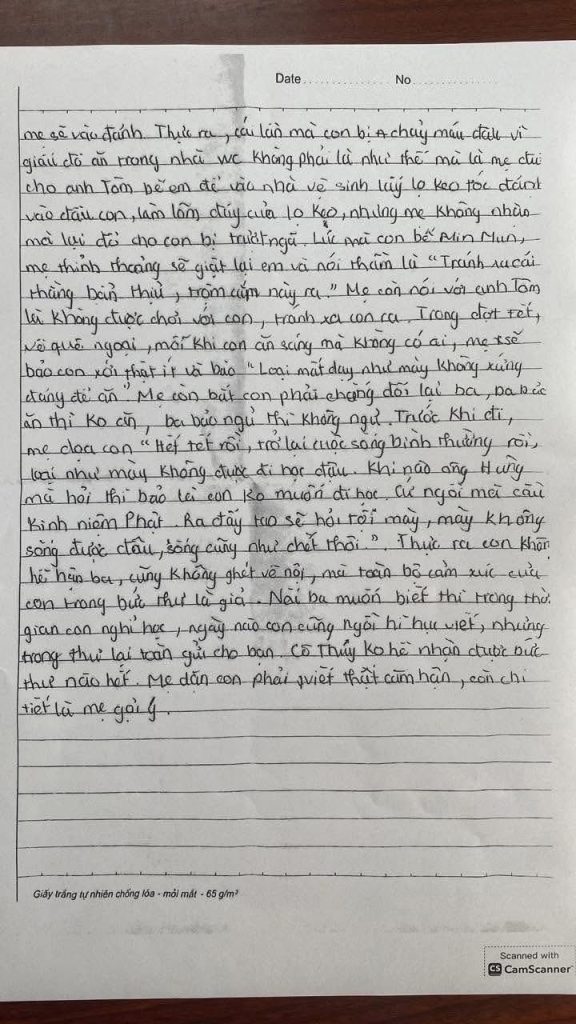 Date No
mẹ sẽ vào đánh. Thực ra, cái lần mà con bị chảy máu đầu vì
giấu đồ ăn trong nhà wc không phải là như thế mà là mẹ đưa
cho anh Tôm bế em để vào nhà vệ sinh lấy lọ keo tóc đánh
vào đầu con, làm lõm đáy của lọ keo, nhưng mẹ không nhận
mà lại đổ cho con bị trượt ngã. Lúc mà con bế Min Mun,
mẹ thỉnh thoảng sẽ giật lại em và nói thầm là "Tránh xa cái
thằng bẩn thỉu, trộm cắm này ra." Mẹ còn nói với anh Tôm
là không được chơi với con, tránh xa con ra. Trong đợt tết,
về quê ngoại, mỗi khi con ăn sáng mà không có ai, mẹ sẽ
bảo con xới thật ít và bảo "Loại mất dạy như mày không xứng
đáng để ăn". Mẹ còn bắt con phải chống đối lại ba, ba bảo
ăn thì ko ăn, ba bảo ngủ thì không ngủ. Trước khi đi,
mẹ dọa con "Hết tết rồi, trở lại cuộc sống bình thường rồi,
loại như mày không được đi học đâu. Khi nào ông Hưng
mà hỏi thì bảo là con ko muốn đi học. Cứ ngồi mà cầu
kinh niệm Phật. Ra đấy tao sẽ hỏi tội mày, mày không
sống được đâu, sống cũng như chết thôi.". Thực ra con không
hề hận ba, cũng không ghét về nội, mà toàn bộ cảm xúc của
con trong bức thư là giả. Nãi ba muốn biết thì trong thời
gian con nghỉ học, ngày nào con cũng ngồi hì hục viết, nhưng
trong thư lại toàn gửi cho bạn. Cô Thủy ko hề nhận được bức
thư nào hết. Mẹ dặn con phải viết thật căm hận, còn chi
tiết là mẹ gợi ý.
Giấy trắng tự nhiên chống lóa - mỏi mắt - 65 g/m²
Scanned with
CS CamScanner